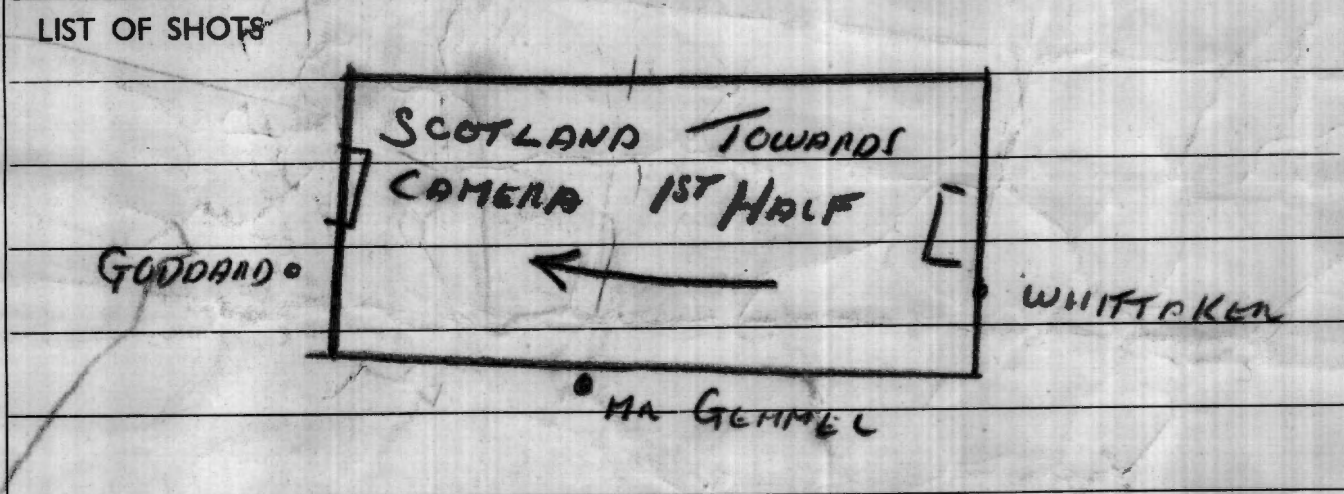 LIST OF SHOTS
SCOTLAND TOWARDS
CAMERA 1ST HALF
GODDARD
WHITTAKER
MR GEMMEL